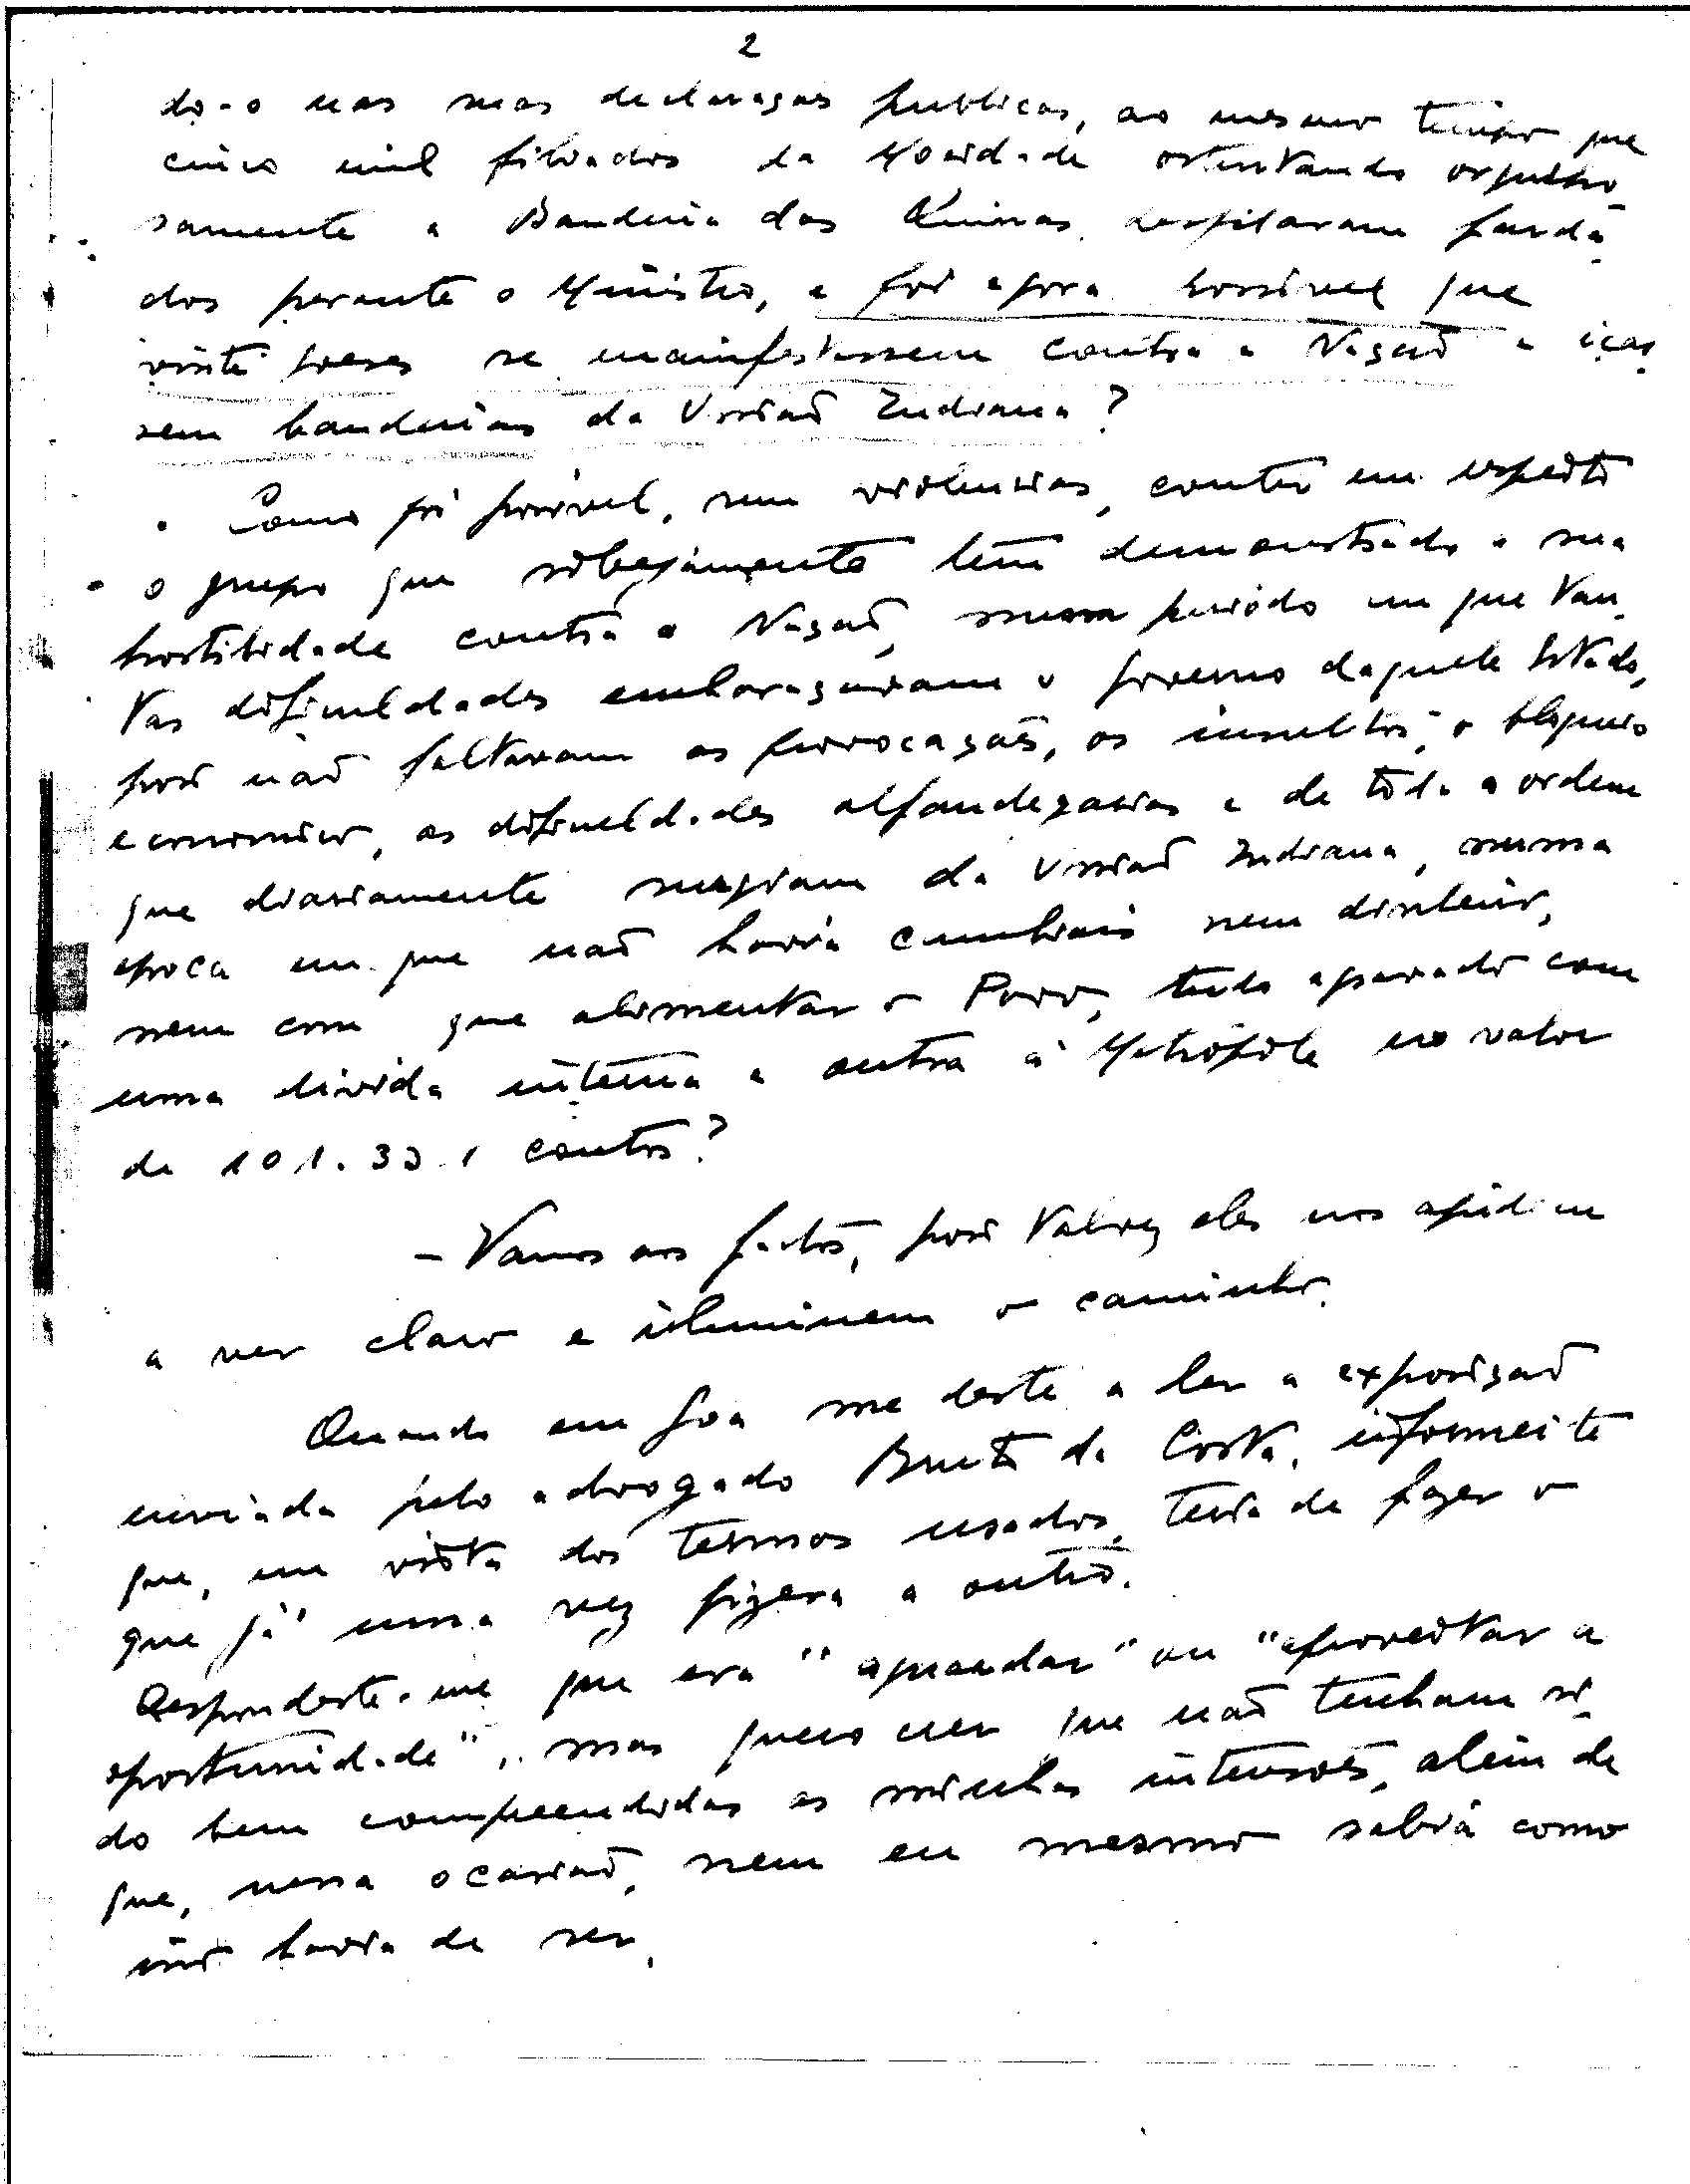 2
do-o nas suas declarações publicas, ao mesmo tempo que
cinco mil filiados da Mocidade ostentando orgulho_
samente a Bandeira das Quinas, desfilaram farda_
dos perante o Ministro, e foi agora possivel que
vinte goeses se manifestassem contra a Nação e iças_
sem bandeiras da União Indiana?
Como foi possivel, sem violencias, conter em respeito
o grupo que sobejamente tem demonstrado a sua
hostilidade contra a Nação, num periodo em que tan_
tas dificuldades embaraçavam o governo daquele Estado,
pois não faltavam as provocações, os insultos, o bloqueio
economico, as dificuldades alfandegarias e de toda a ordem
que diariamente surgiam da União Indiana, numa
epoca em que não havia cambiais nem dinheiro,
nem com que alimentar o Povo, tudo agravado com
uma divida interna e outra á Metrópole no valor
de 101.331 contos?
- Vamos aos factos, pois talvez eles nos ajudem
a ver claro e iluminem o caminho.
Quando em Goa me deste a ler a exposição
enviada pelo advogado Bruto da Costa, informei-te
que, em vista dos termos usados, teria de fazer o
que já uma vez fizera a outro.
Respondeste-me que era "aguardar" ou "aproveitar a
oportunidade", mas quero crer que não tenham si_
do bem compreendidas as minhas intensões, além de
que, nessa ocasião, nem eu mesmo sabia como
isso havia de ser.